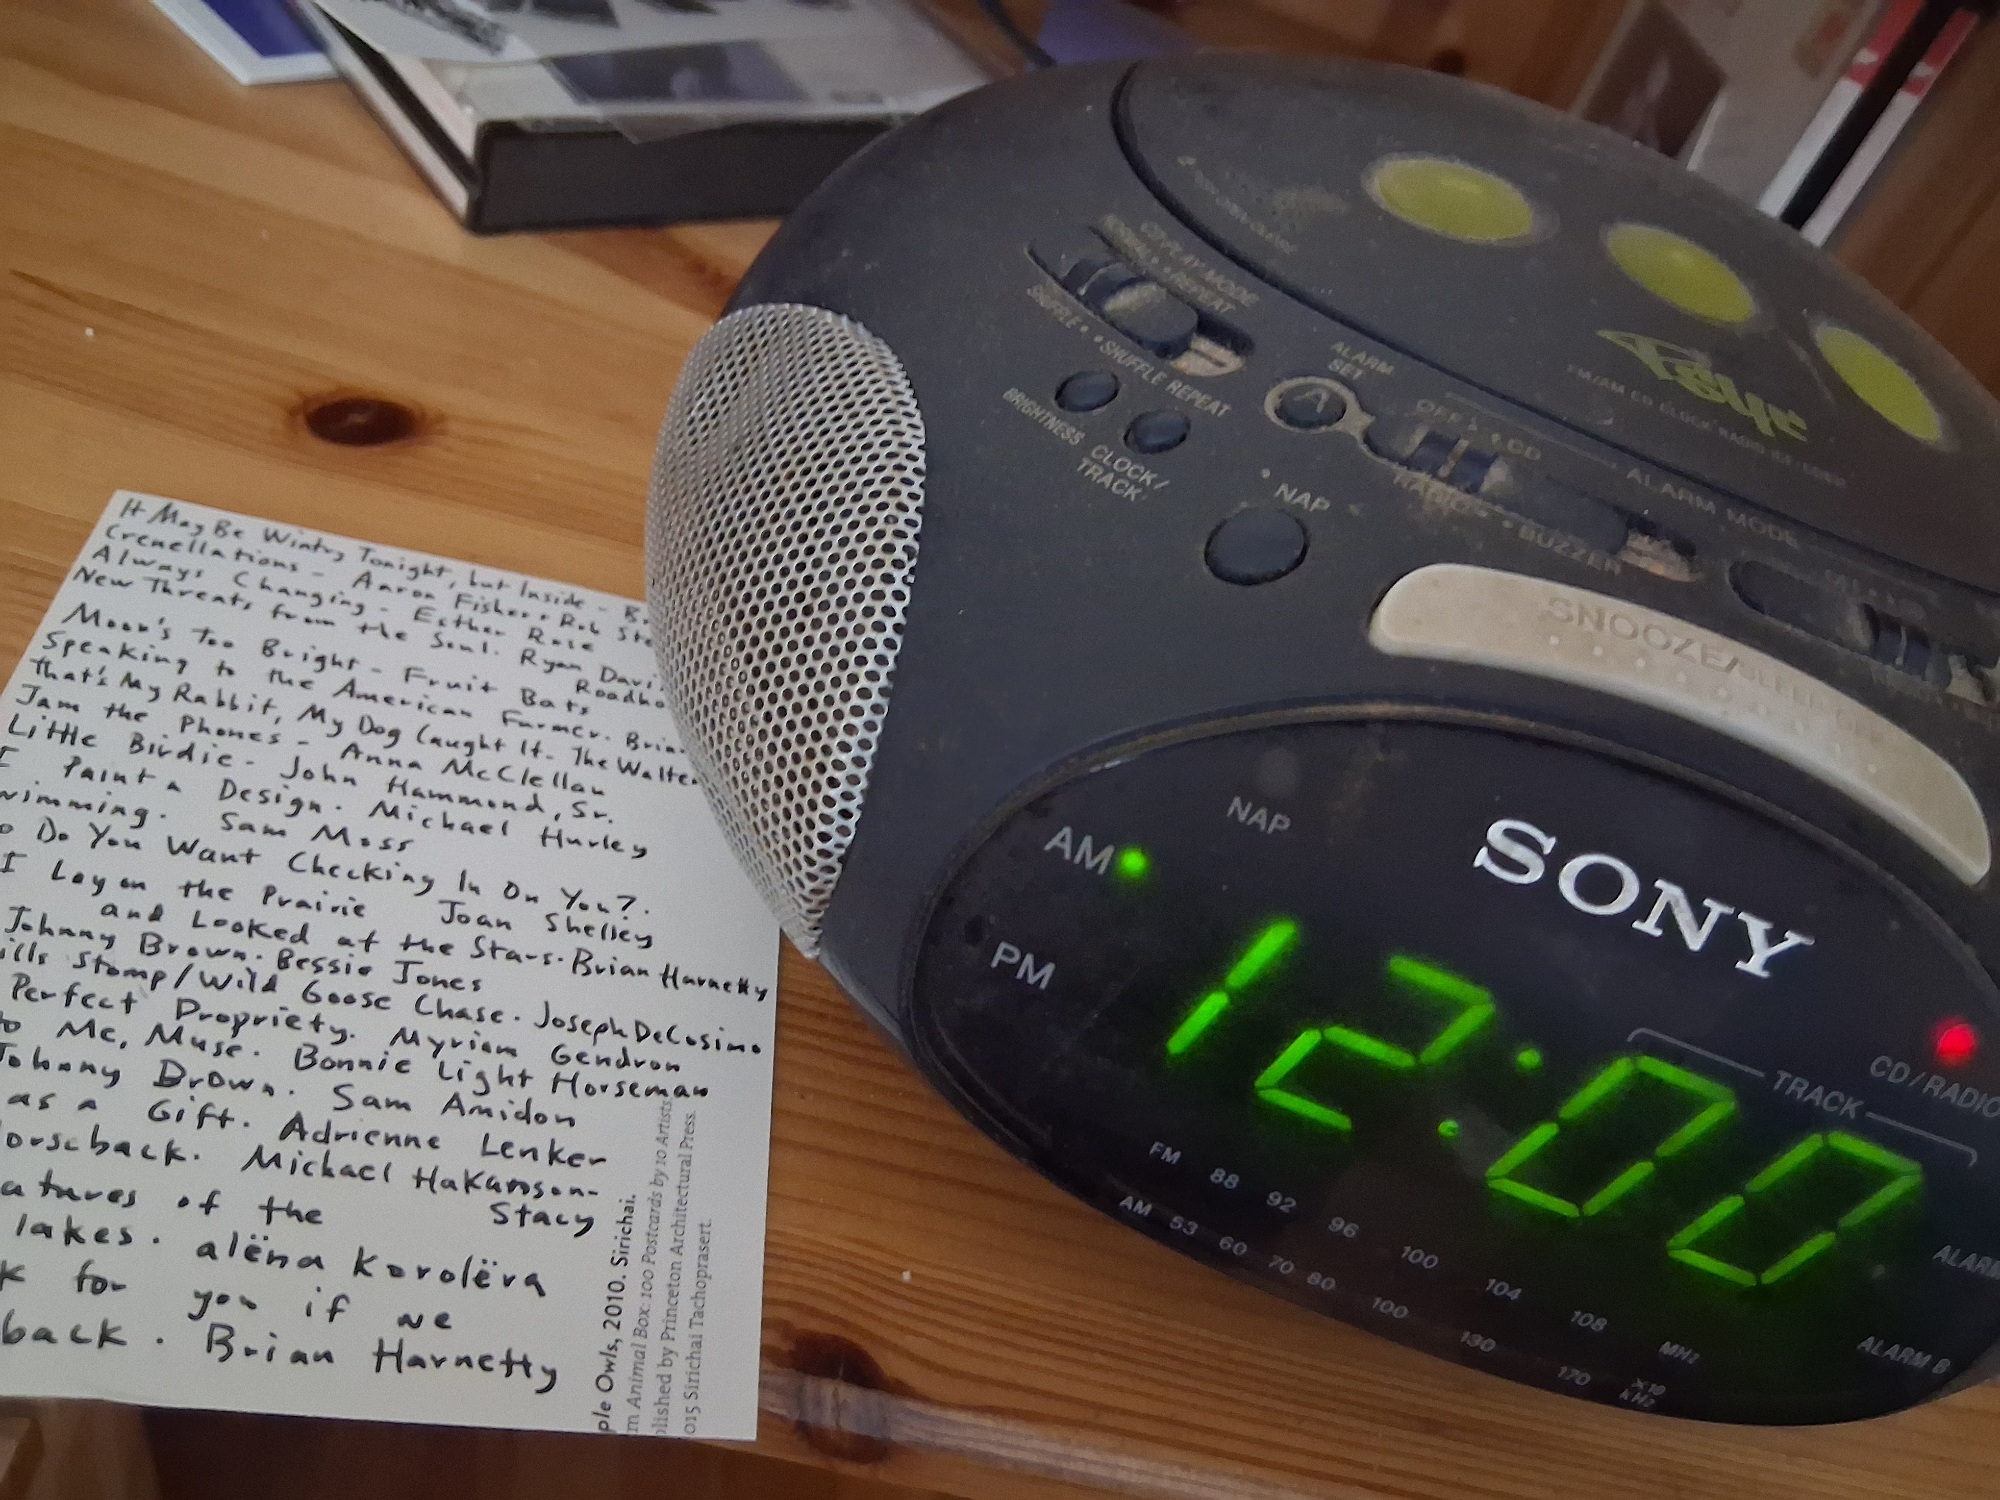 It May Be Wintry Tonight, but Inside -
Crenellations - Aaron Fisher + Rob
Always Changing - Esther Rose
New Threats from the Soul. Ryan Davi
Roadho
Moon's Too Bright - Fruit Bats
Speaking to the American Farmer. Bria
That's My Rabbit, My Dog Caught It. The Walter
Jam the Phones - Anna McClellan
Little Birdie - John Hammond, Sr.
I Paint a Design. Michael Hurley
wimming. Sam Moss
o Do You Want Checking In On You?.
Joan Shelley
I Lay on the Prairie
and Looked at the Stars. Brian Harnetty
Johnny Brown. Bessie Jones
ills Stomp/Wild Goose Chase. Joseph DeCosimo
Perfect Propriety. Myriam Gendron
to Me, Muse. Bonnie Light Horseman
Johnny Brown. Sam Amidon
as a Gift. Adrienne Lenker
orseback. Michael Hakanson-
Stacy
atures of the
lakes. alëna korolëva
k for you if we
back. Brian Harnetty
ple Owls, 2010. Sirichai.
m Animal Box: 100 Postcards by 10 Artists
blished by Princeton Architectural Press.
015 Sirichai Tachoprasert.
CD PLAY MODE
NORMAL • REPEAT
SHUFFLE • • SHUFFLE REPEAT
BRIGHTNESS
CLOCK/
TRACK
ALARM
SET
A
OFF • • CD
RADIO • • BUZZER
ALARM MODE
• NAP
Psyc
FM/AM CD CLOCK RADIO
SNOOZE/SLEEP OFF
SONY
NAP
AM
PM
12:00
TRACK
CD/RADIO
ALARM
ALARM B
FM 88 92 96 100 104 108 MHz
AM 53 60 70 80 100 130 170 X10
kHz